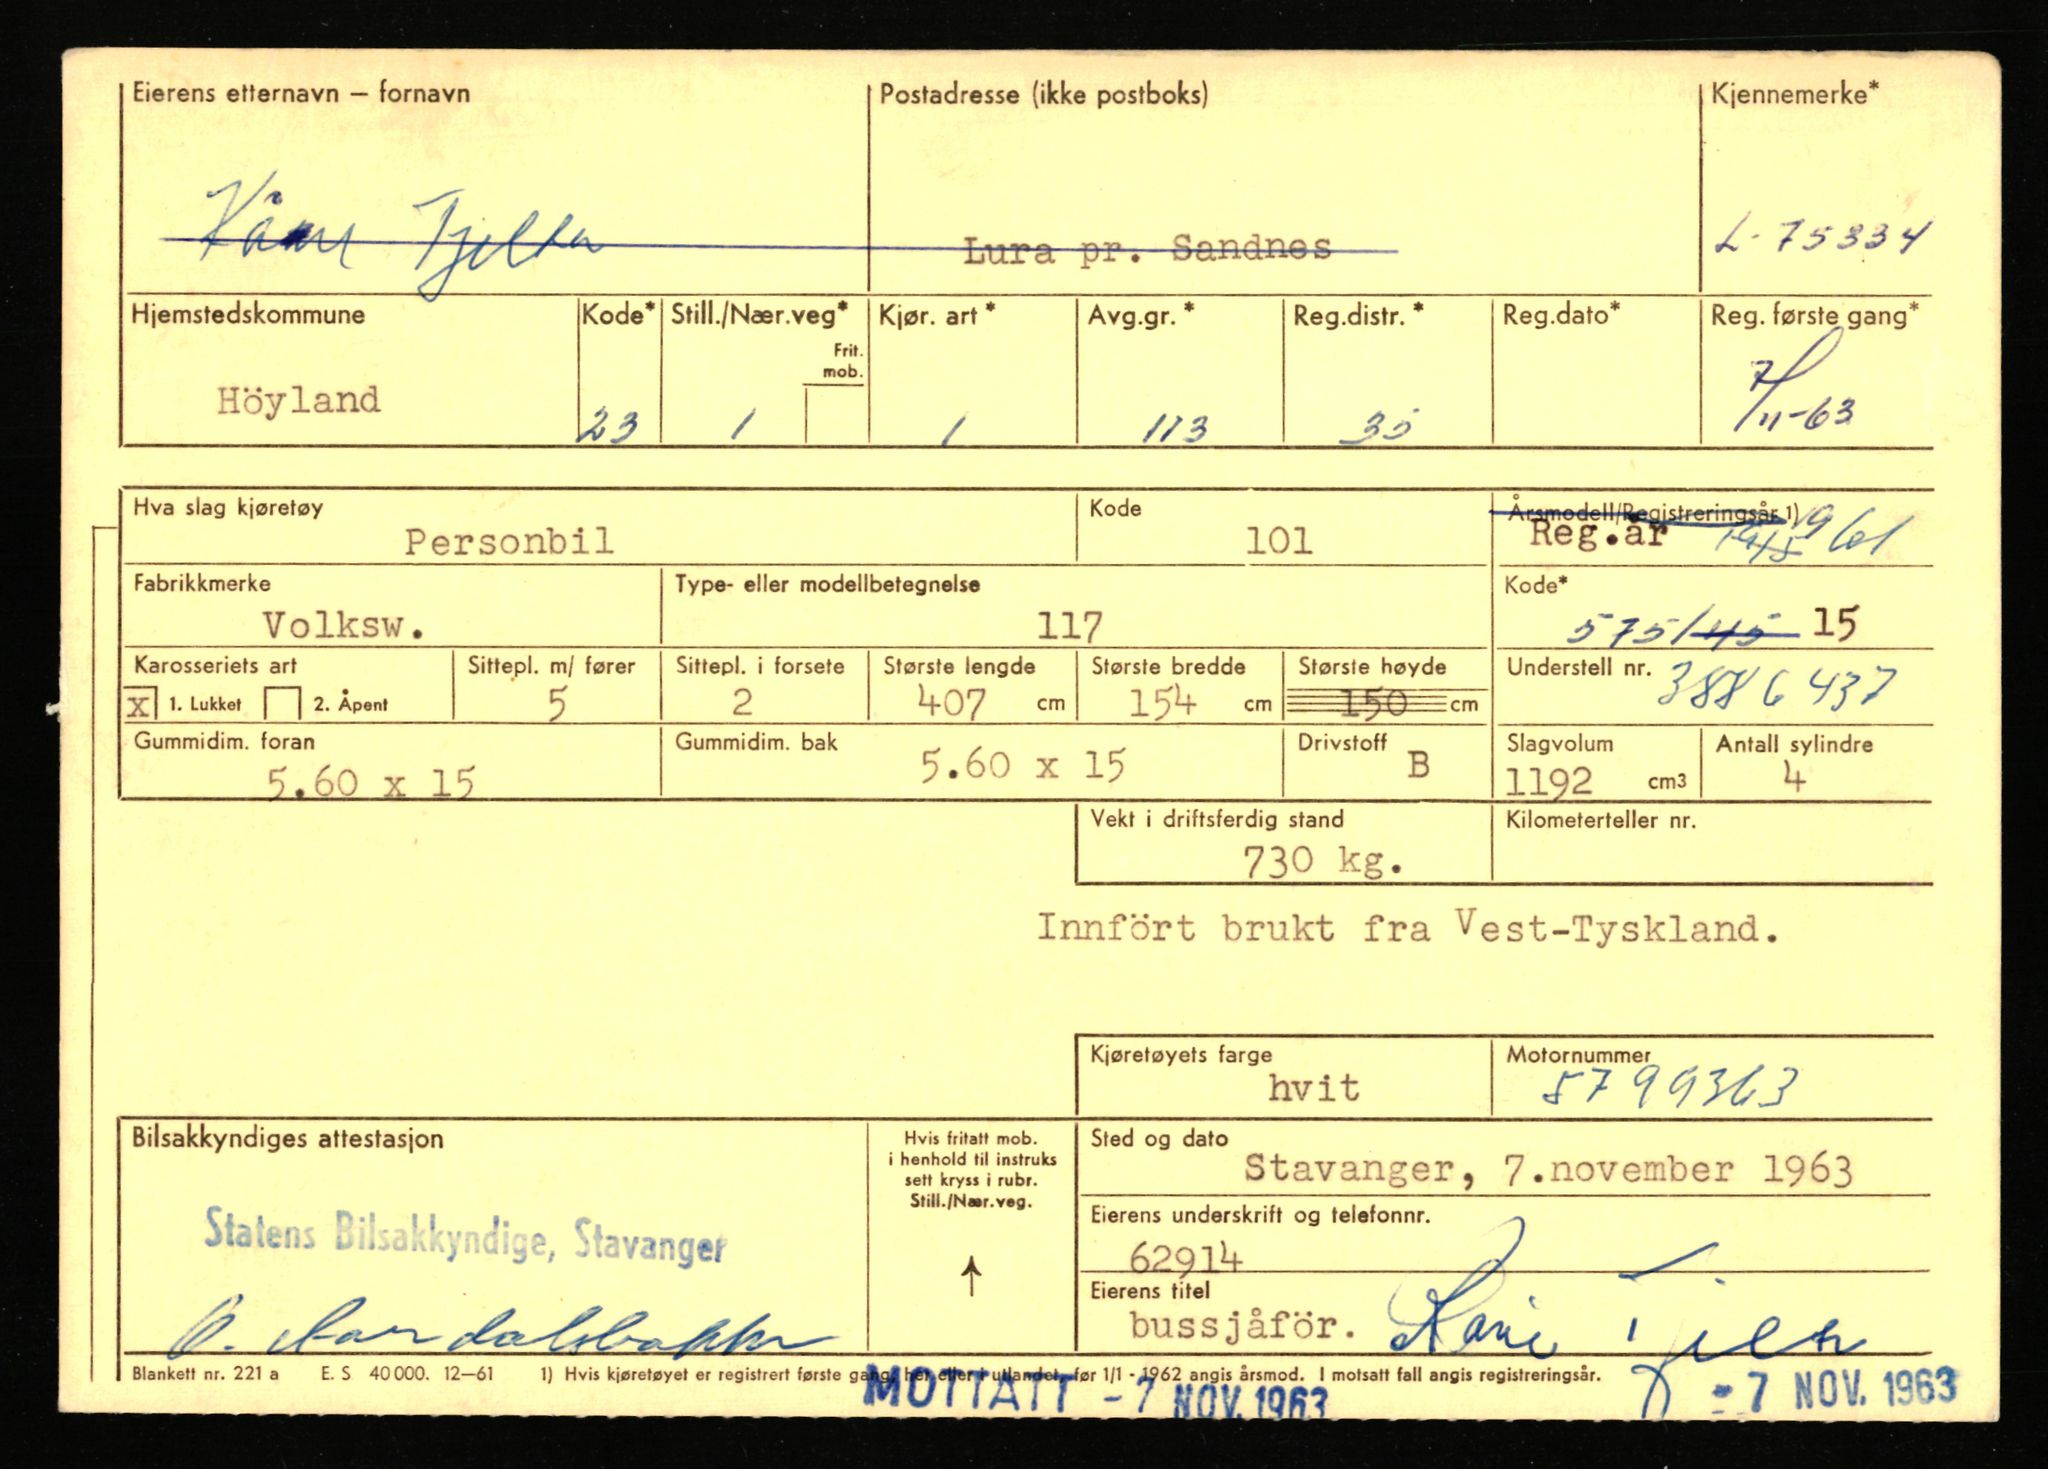 Eierens etternavn – fornavn Postadresse (ikke postboks) Kjennemerke*
Kåre Tjelta Lura pr. Sandnes L-75334
Hjemstedskommune Kode* Still./Nær.veg* Kjør. art* Avg.gr.* Reg.distr.* Reg.dato* Reg. første gang*
Frit.
mob.
Höyland 23 1 1 113 35 7/11-63
Hva slag kjøretøy Kode Årsmodell/Registreringsår 1)
Personbil 101 Reg.år 1961
Fabrikkmerke Type- eller modellbetegnelse Kode*
Volksw. 117 575/45 15
Karosseriets art Sittepl. m/ fører Sittepl. i forsete Største lengde Største bredde Største høyde Understell nr.
x 1. Lukket 2. Åpent 5 2 407 cm 154 cm 150 cm 3886437
Gummidim. foran Gummidim. bak Drivstoff Slagvolum Antall sylindre
5.60 x 15 5.60 x 15 B 1192 cm3 4
Vekt i driftsferdig stand Kilometerteller nr.
730 kg.
Innfört brukt fra Vest-Tyskland.
Kjøretøyets farge Motornummer
hvit 5799363
Bilsakkyndiges attestasjon Hvis fritatt mob. Sted og dato
i henhold til instruks
sett kryss i rubr.
Still./Nær.veg.
Stavanger, 7.november 1963
Eierens underskrift og telefonnr.
Statens Bilsakkyndige, Stavanger
62914
Eierens titel
bussjåför. Kåre Tjelta
Blankett nr. 221 a E. S 40 000. 12–61 1) Hvis kjøretøyet er registrert første gang, her eller i utlandet, før 1/1 - 1962 angis årsmod. I motsatt fall angis registreringsår.
MOTTATT - 7 NOV. 1963 - 7 NOV. 1963